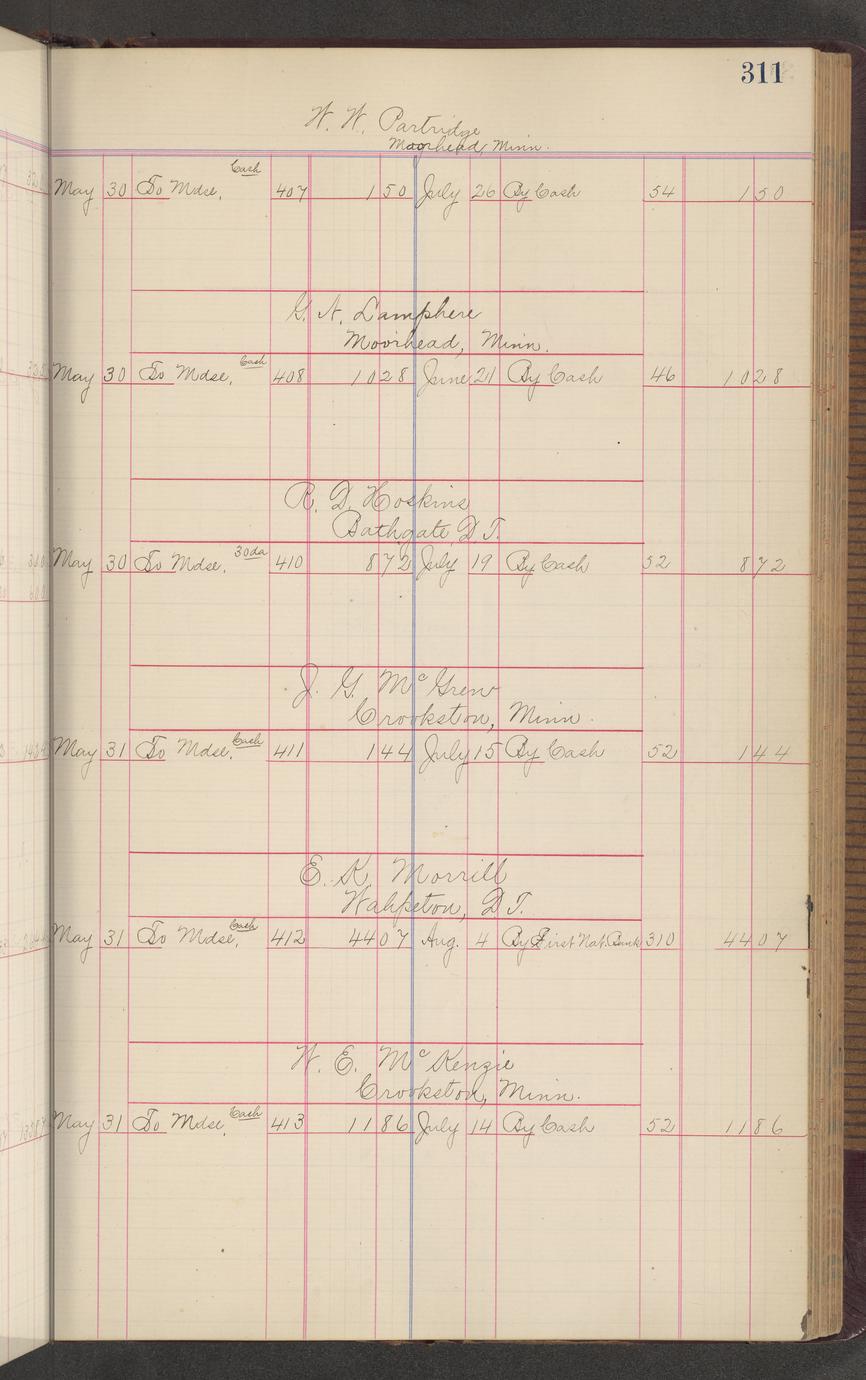 311
W. W. Partridge
Moorhead, Minn.
May 30 To Mdse, Cash 407 1 50 July 26 By Cash 54 1 50
G. N. Lamphere
Moorhead, Minn.
May 30 To Mdse, Cash 408 10 28 June 21 By Cash 46 10 28
R. D. Hoskins
Bathgate, D. T.
May 30 To Mdse, 30da 410 8 72 July 19 By Cash 52 8 72
J. G. McGrew
Crookston, Minn.
May 31 To Mdse, Cash 411 1 44 July 15 By Cash 52 1 44
E. K. Morrill
Wahpeton, D. T.
May 31 To Mdse, Cash 412 44 07 Aug. 4 By First Nat. Bank 310 44 07
W. E. McKenzie
Crookston, Minn.
May 31 To Mdse, Cash 413 11 86 July 14 By Cash 52 11 86